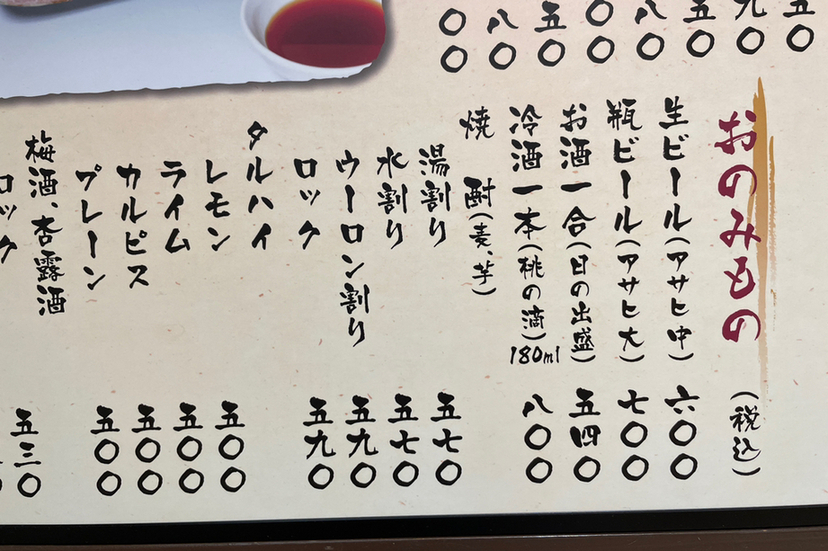 五〇
九〇
五〇
八〇
〇〇
五〇
八〇
〇〇
おのみもの
(税込)
生ビール(アサヒ中) 六〇〇
瓶ビール(アサヒ大) 七〇〇
お酒一合(日の出盛) 五四〇
冷酒一本(桃の滴)180ml 八〇〇
焼酎(麦、芋)
湯割り 五七〇
水割り 五七〇
ウーロン割り 五九〇
ロック 五九〇
タルハイ
レモン 五〇〇
ライム 五〇〇
カルピス 五〇〇
プレーン 五〇〇
梅酒、杏露酒 五三〇
ロック